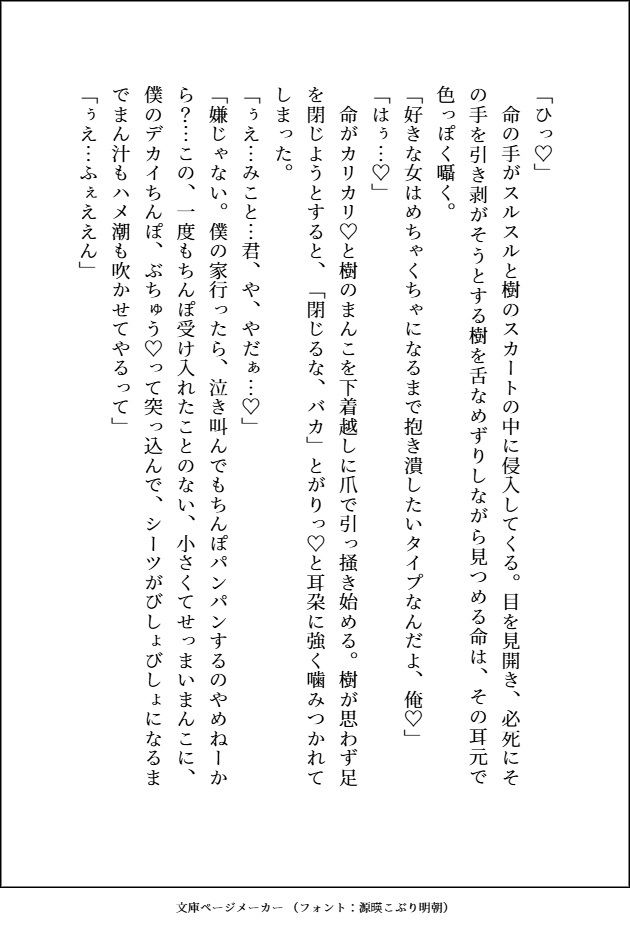 「ひっ♡」
　命の手がスルスルと樹のスカートの中に侵入してくる。目を見開き、必死にそ
の手を引き剥がそうとする樹を舌なめずりしながら見つめる命は、その耳元で
色っぽく囁く。
「好きな女はめちゃくちゃになるまで抱き潰したいタイプなんだよ、俺♡」
「はぅ…♡」
　命がカリカリ♡と樹のまんこを下着越しに爪で引っ掻き始める。樹が思わず足
を閉じようとすると、「閉じるな、バカ」とがりっ♡と耳朶に強く噛みつかれて
しまった。
「ぅえ…みこと…君、や、やだぁ…♡」
「嫌じゃない。僕の家行ったら、泣き叫んでもちんぽパンパンするのやめねーか
ら？…この、一度もちんぽ受け入れたことのない、小さくてせっまいまんこに、
僕のデカイちんぽ、ぶちゅう♡って突っ込んで、シーツがびしょびしょになるま
でまん汁もハメ潮も吹かせてやるって」
「ぅえ…ふぇええん」
文庫ページメーカー（フォント：源暎こぶり明朝）